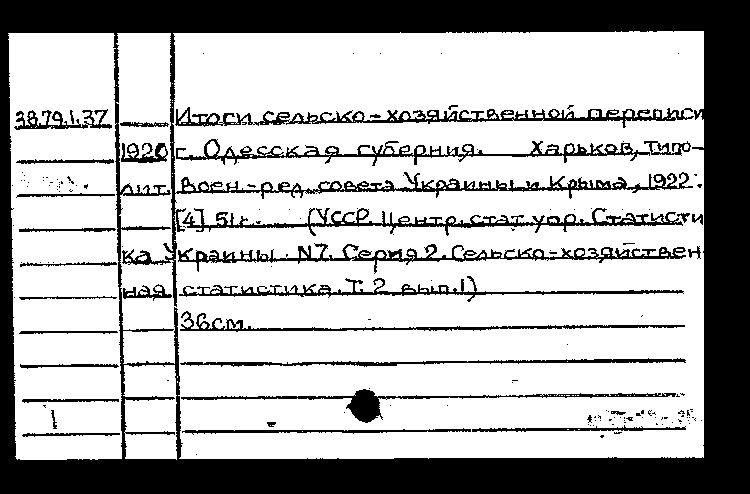 38.79.1.37 Итоги сельско-хозяйственной переписи
1920 г. Одесская губерния. Харьков, Типо-
лит. Воен-ред. совета Украины и Крыма, 1922.
[4], 51 г. (УССР. Центр. стат. упр. Статисти
ка Украины. N7. Серия 2. Сельско-хозяйствен
ная статистика. Т. 2 вып. 1)
36см.